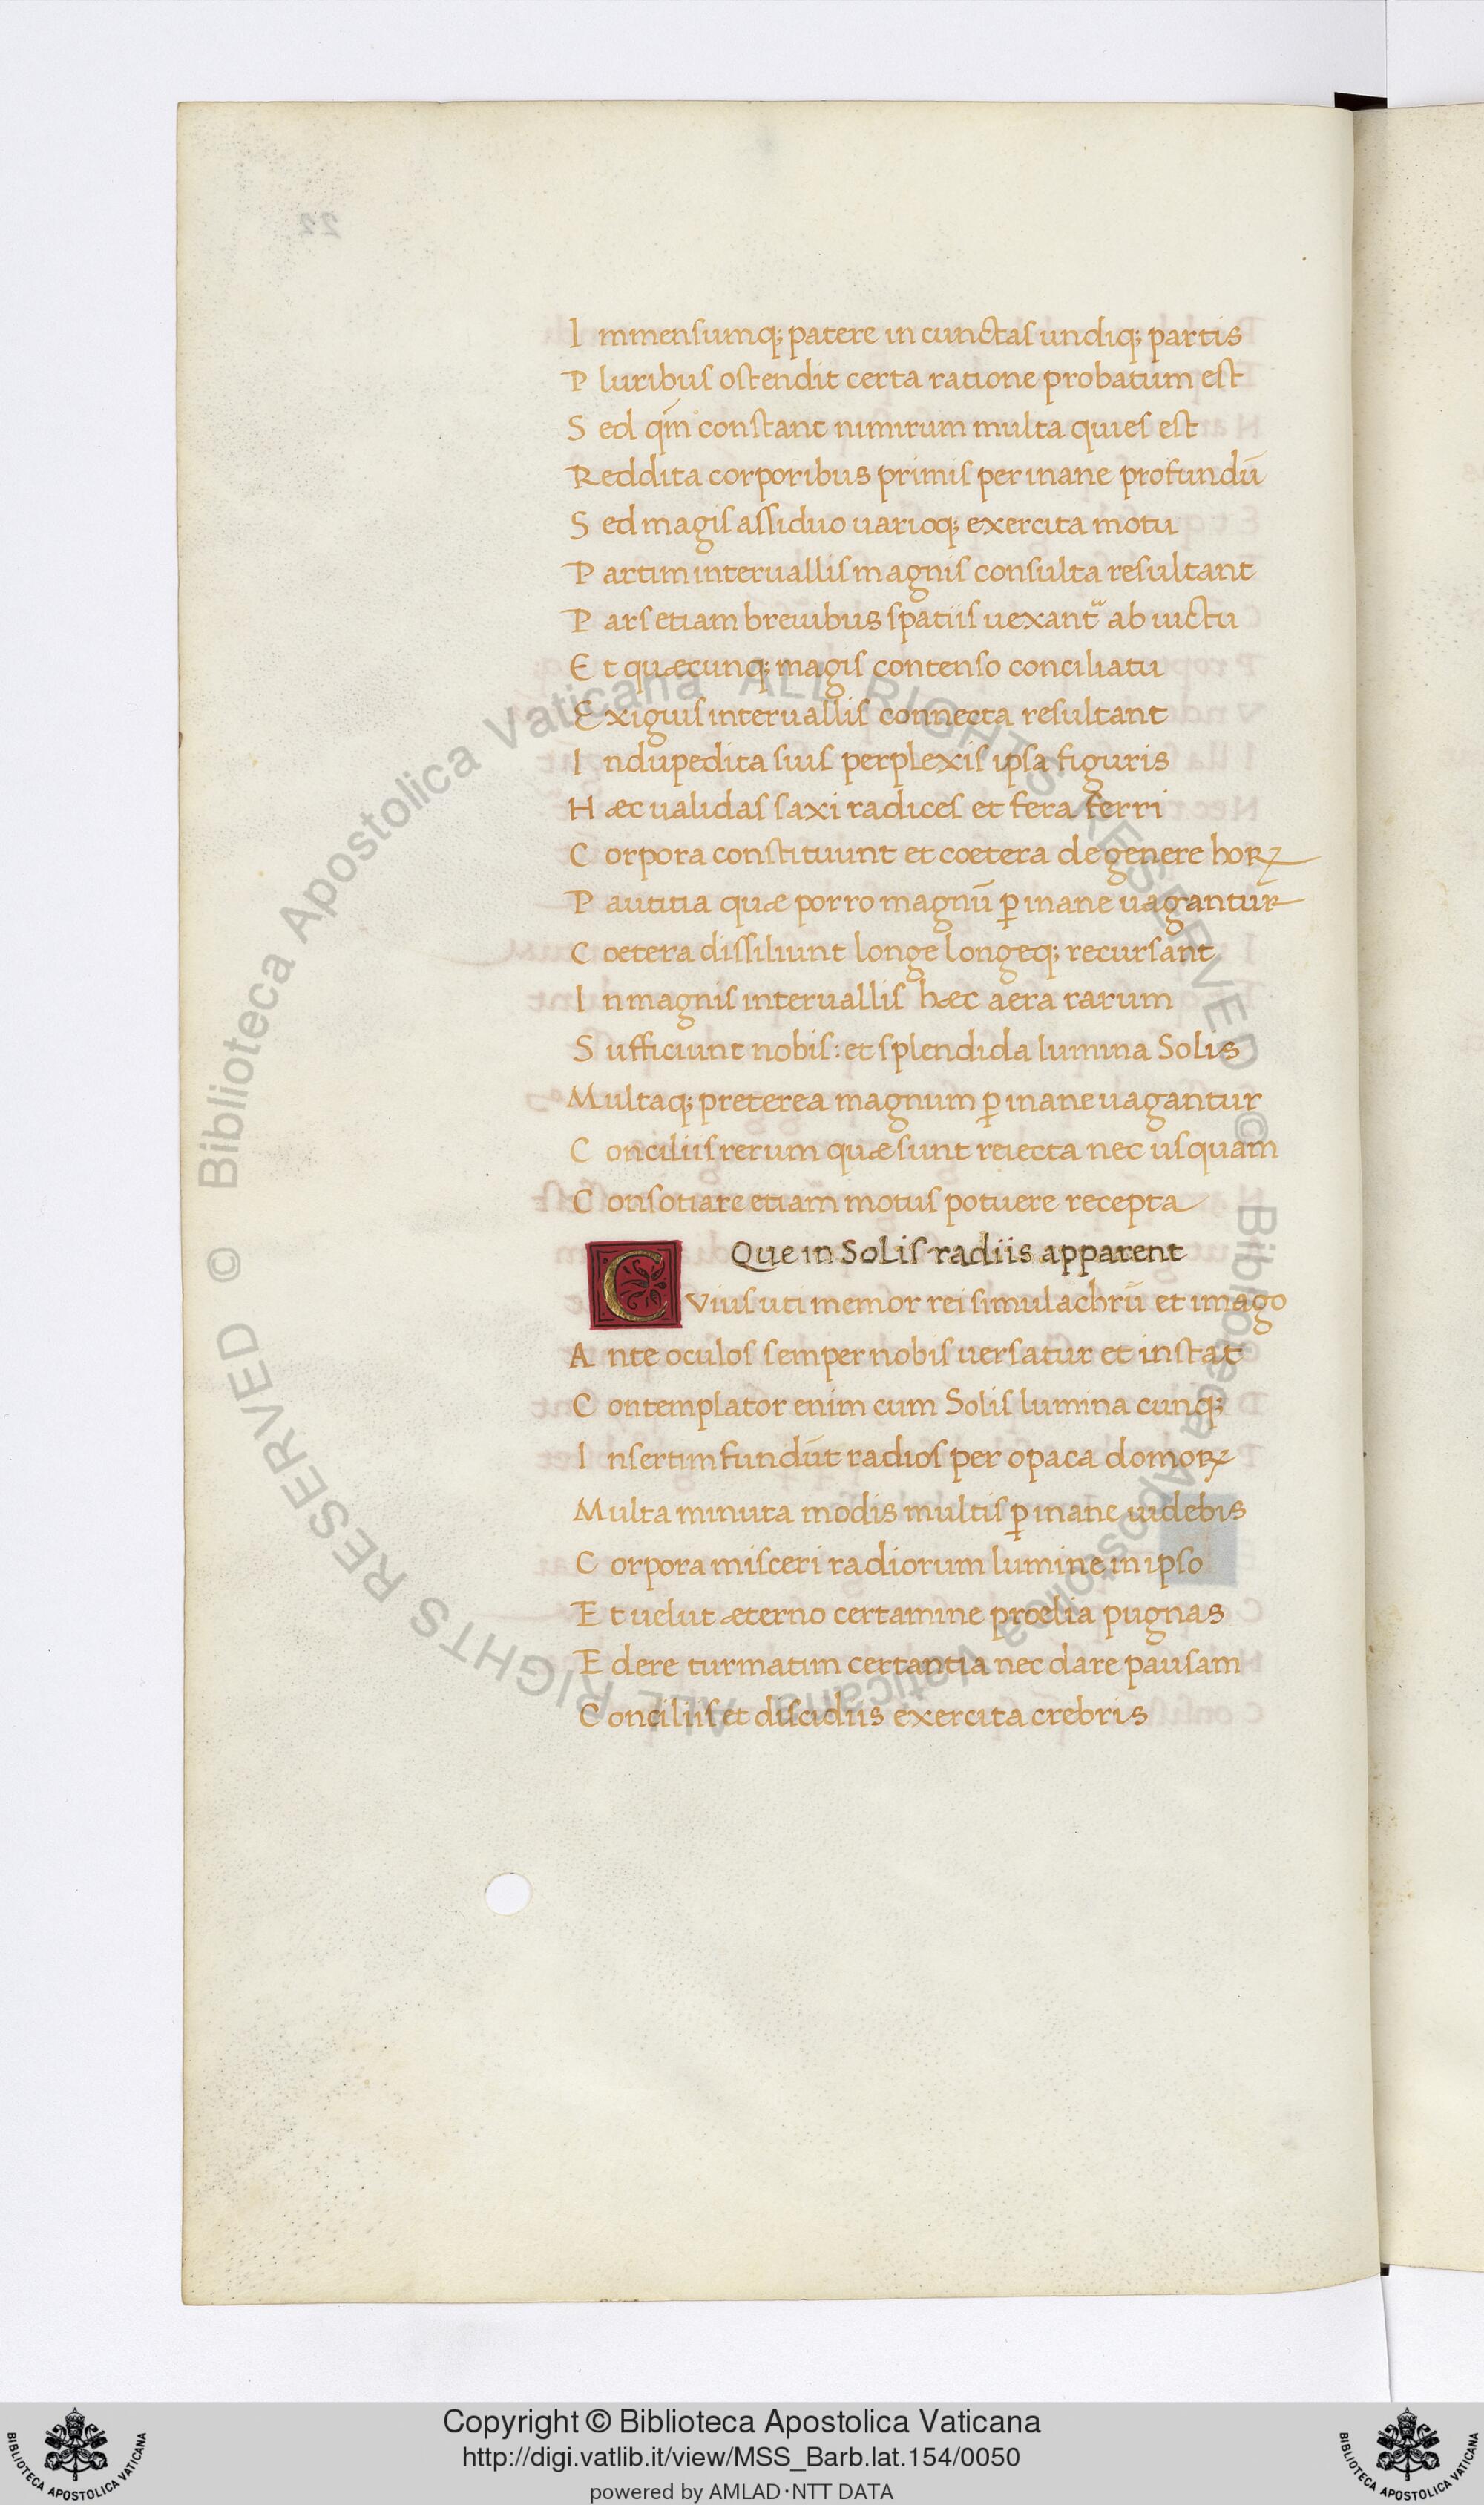 22
Immensumq; patere in cunctas undiq; partis
Pluribus ostendit certa ratione probatum est
Sed qm̄ constant nimirum multa quies est
Reddita corporibus primis per inane profundū
Sed magis assiduo uarioq; exercita motu
Partim interuallis magnis consulta resultant
Pars etiam breuibus spatiis uexant᷑ ab iuctu
Et quæcunq; magis contenso conciliatu
Exiguis interuallis connecta resultant
Indupedita suis perplexis ipsa figuris
Hæc ualidas saxi radices et fera ferri
Corpora constituunt et coetera de genere hoꝝ
Pautitia quæ porro magnū ꝑ inane uagantur
Coetera dissiliunt longe longeq; recursant
In magnis interuallis hæc aera rarum
Sufficiunt nobis: et splendida lumina Solis
Multaq; preterea magnum ꝑ inane uagantur
Conciliis rerum quæ sunt reiecta nec usquam
Consotiare etiam motus potuere recepta
Que in Solis radiis apparent
CVius uti memor rei simulachrū et imago
Ante oculos semper nobis uersatur et instat
Contemplator enim cum Solis lumina cunq;
Insertim fundūt radios per opaca domoꝝ
Multa minuta modis multis ꝑ inane uidebis
Corpora misceri radiorum lumine in ipso
Et uelut æterno certamine proelia pugnas
Edere turmatim certantia nec dare pausam
Conciliis et discidiis exercita crebris
© Biblioteca Apostolica Vaticana ALL RIGHTS RESERVED © Biblioteca Apostolica Vaticana ALL RIGHTS RESERVED
Copyright © Biblioteca Apostolica Vaticana
http://digi.vatlib.it/view/MSS_Barb.lat.154/0050
powered by AMLAD·NTT DATA
BIBLIOTECA APOSTOLICA VATICANA
BIBLIOTECA APOSTOLICA VATICANA